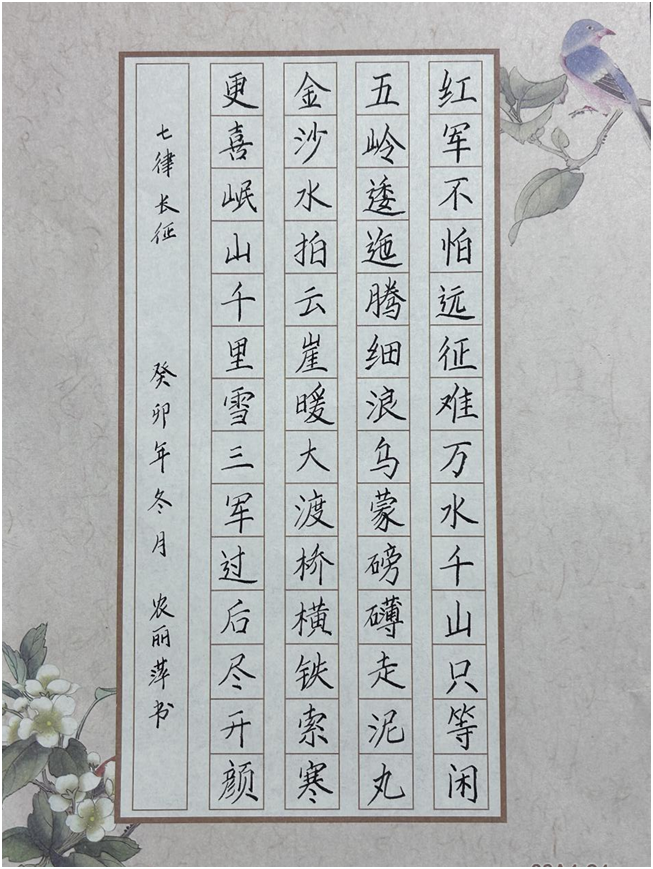 红军不怕远征难万水千山只等闲
五岭逶迤腾细浪乌蒙磅礴走泥丸
金沙水拍云崖暖大渡桥横铁索寒
更喜岷山千里雪三军过后尽开颜
七律 长征 癸卯年冬月 农丽萍书